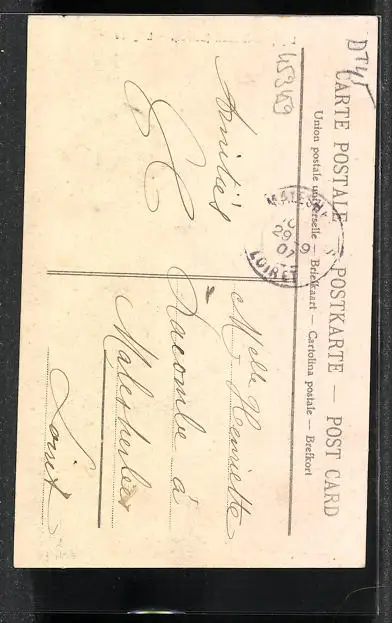 DT45
CARTE POSTALE — POSTKARTE — POST CARD
Union postale universelle — Briefkaart — Cartolina postale — Brefkort
45369
MALESH
29 9
07
LOIRET
Amitiés
Melle Henriette
Lacombe à
Malesherbes
Loiret